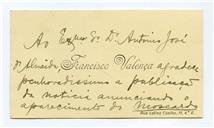 Ao Exmo Sr Dr António José
d'Almeida Francisco Valença agradece
penhoradissimo a publicação
da noticia anunciando o
aparecimento do Moscardo
Rua Latino Coelho,